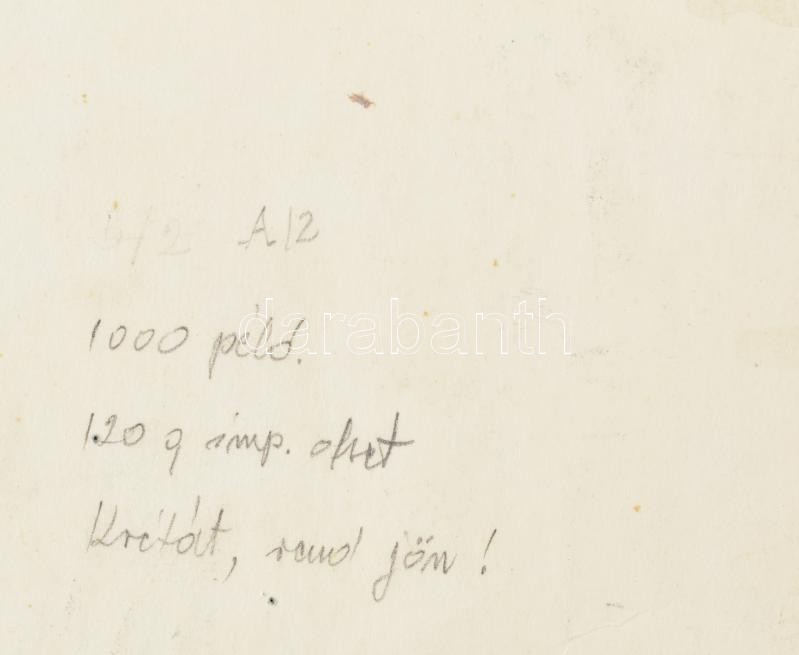 A/2
1000 péld.
120 g imp. ofset
Krétát, rend jön!
darabanth